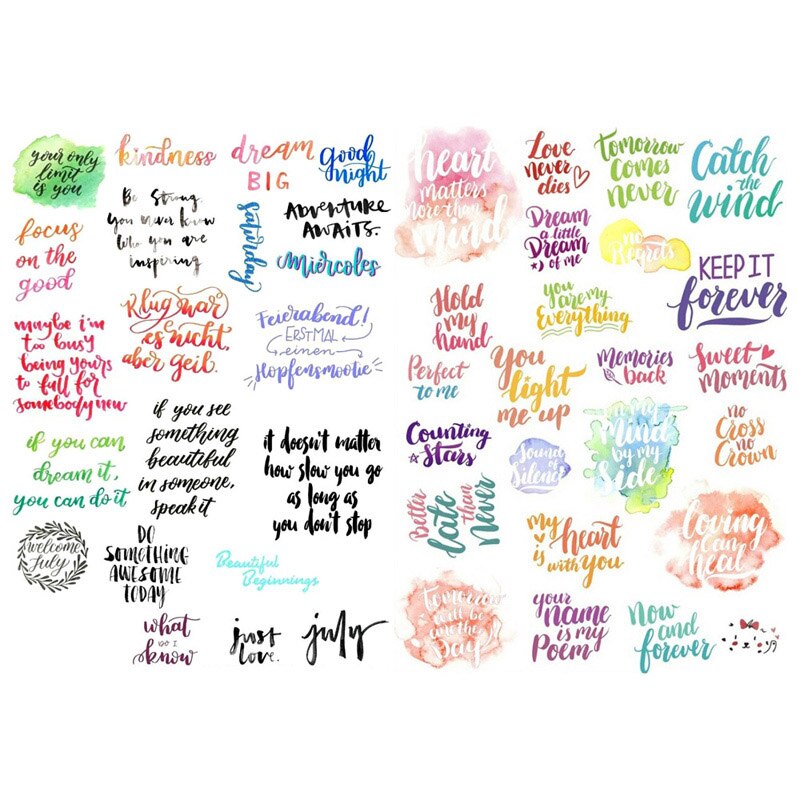 your only
limit
is you
kindness
dream
BIG
good
night
Be Strong.
you never know
who you are
inspiring
Saturday
ADVENTURE
AWAITS.
Miércoles
focus
on the
good
Klug war
es nicht,
aber geil.
Feierabend!
ERSTMAL
einen
Hopfensmootie!
maybe i'm
too busy
being yours
to fall for
somebody new
if you see
something
beautiful
in someone,
speak it
it doesn't matter
how slow you go
as long as
you don't stop
if you can
dream it,
you can do it
welcome
July
DO
SOMETHING
AWESOME
TODAY
Beautiful
Beginnings
what
do i
know
just
love.
july
heart
matters
more than
mind
Love
never
dies
Tomorrow
comes
never
Catch
the
wind
Dream
a little
Dream
of me
no
Regrets
KEEP IT
forever
Hold
my
hand
you
are my
Everything
Perfect
to me
You
light
me up
Memories
back
Sweet
moments
Counting
Stars
Sound
of
Silence
Mind
by my
Side
no
Cross
no
Crown
Better
late
than
never
My
heart
is
with you
loving
can
heal
tomorrow
will be
another
Day
your
name
is my
Poem
Now
and
forever